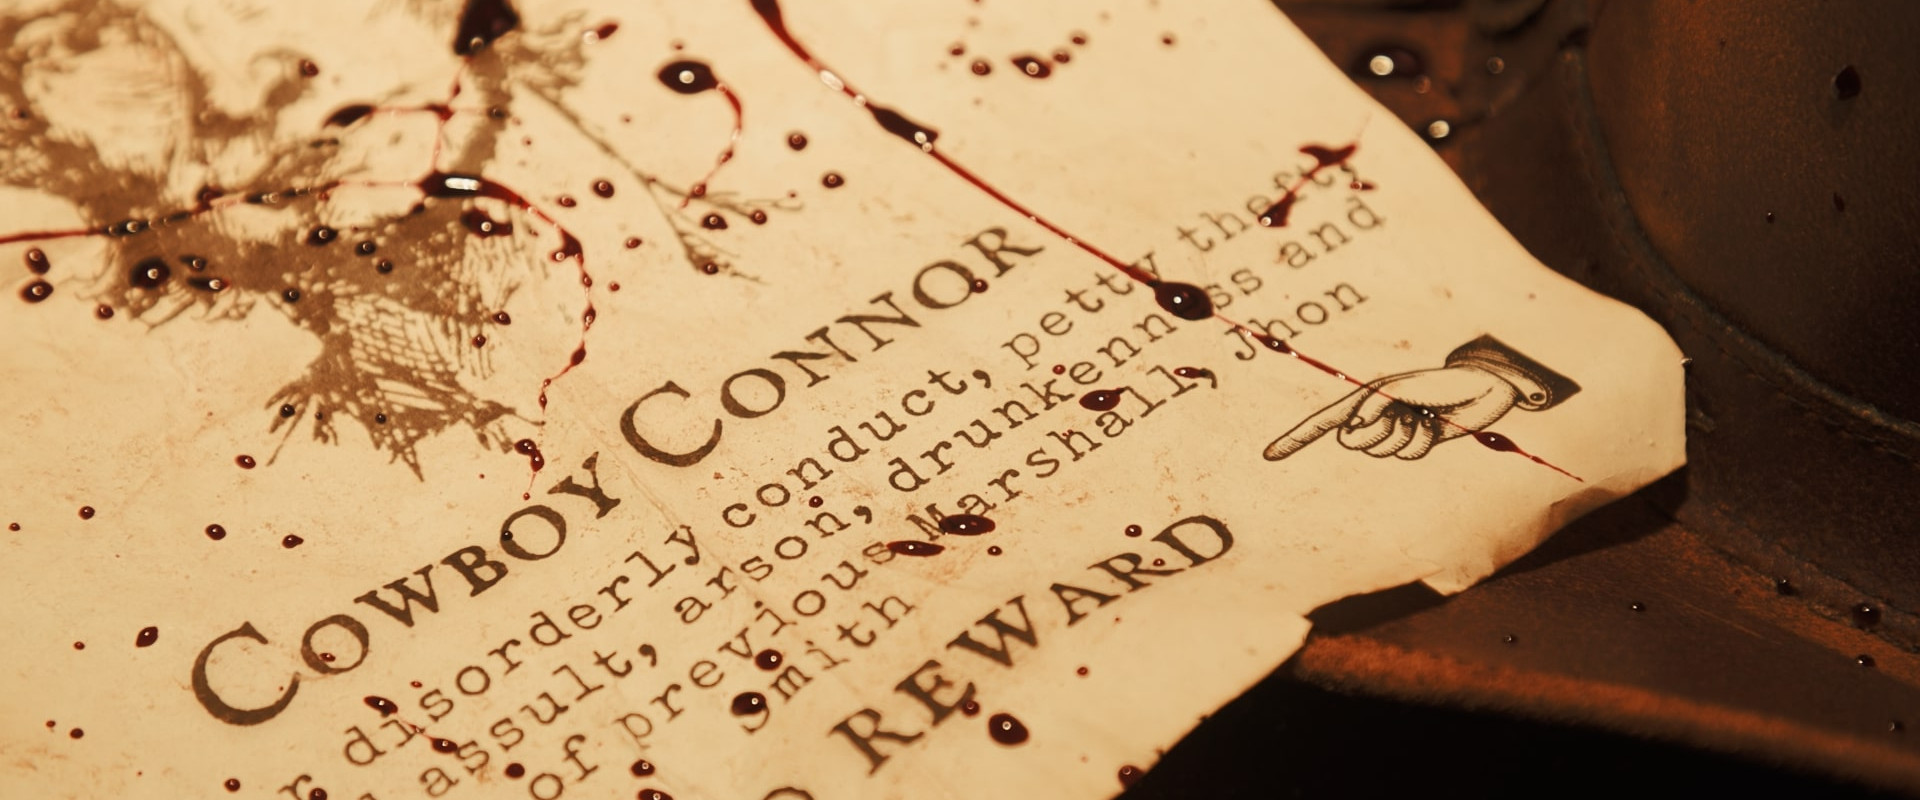 COWBOY CONNOR
disorderly conduct, petty theft,
assult, arson, drunkenness and
of previous Marshall, Jhon
Smith
REWARD